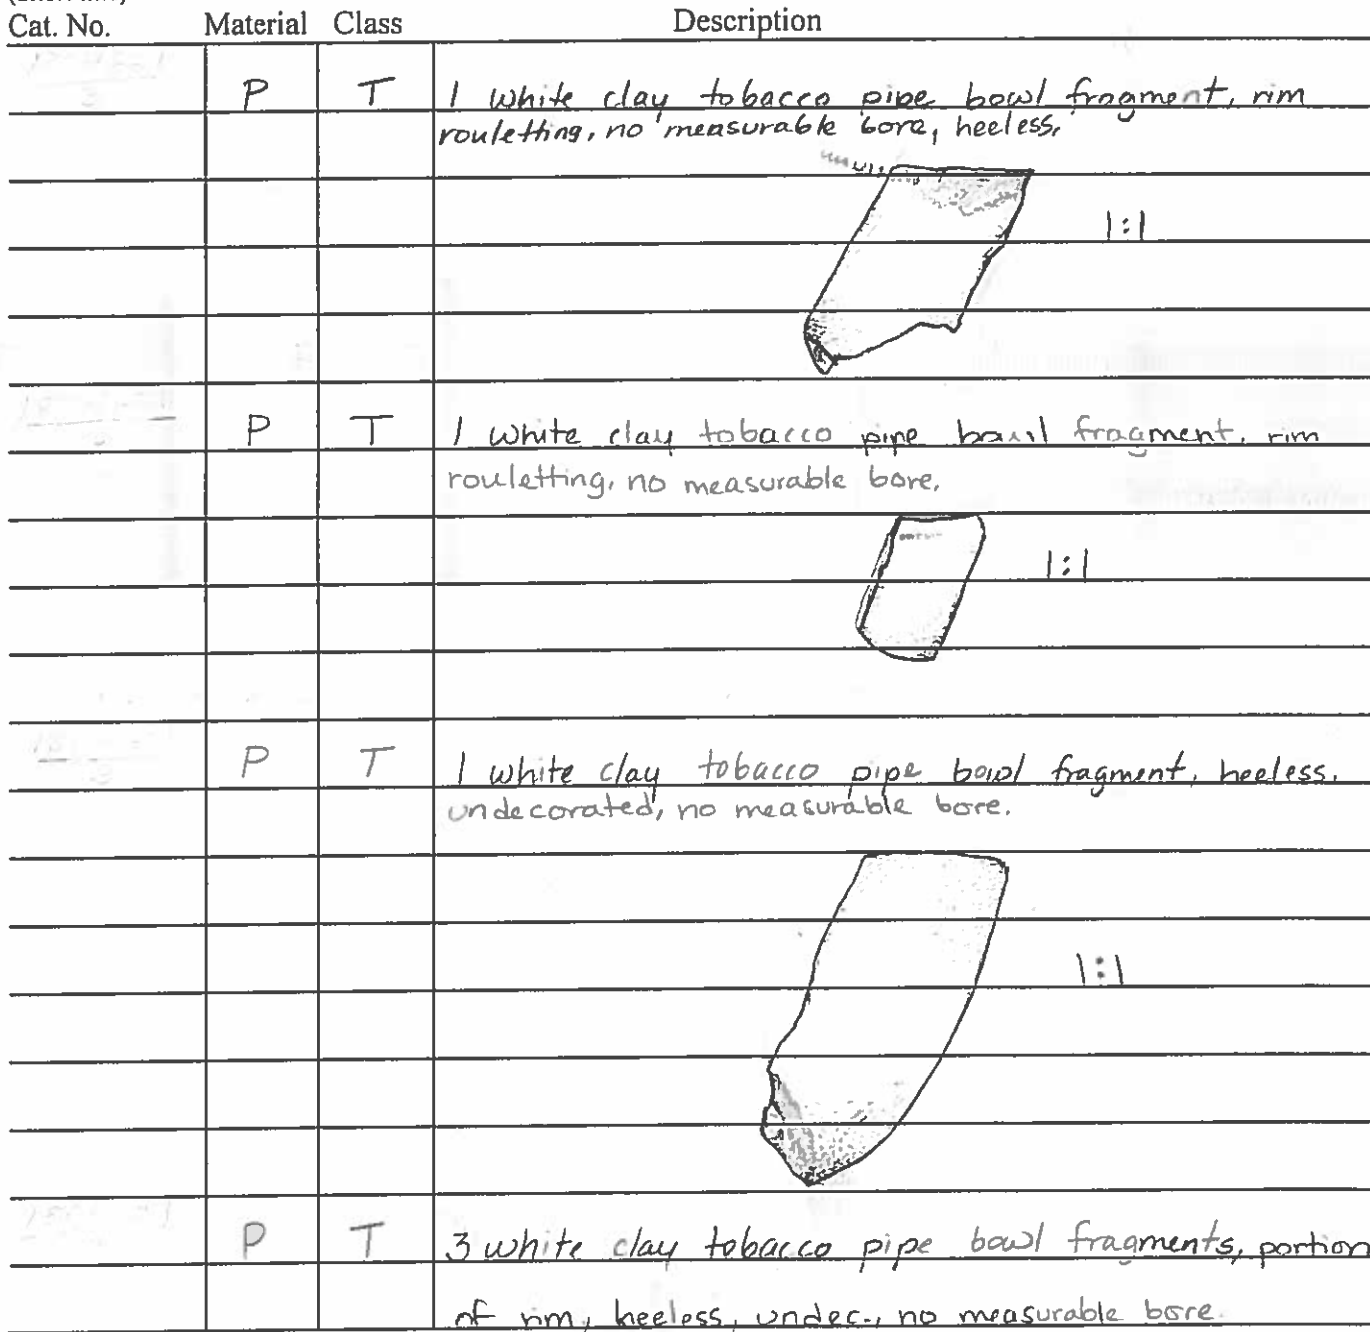 Cat. No. Material Class Description
P T 1 white clay tobacco pipe bowl fragment, rim
rouletting, no measurable bore, heeless.
1:1
P T 1 white clay tobacco pipe bowl fragment, rim
rouletting, no measurable bore.
1:1
P T 1 white clay tobacco pipe bowl fragment, heeless,
undecorated, no measurable bore.
1:1
P T 3 white clay tobacco pipe bowl fragments, portion
of rim, heeless, undec., no measurable bore.